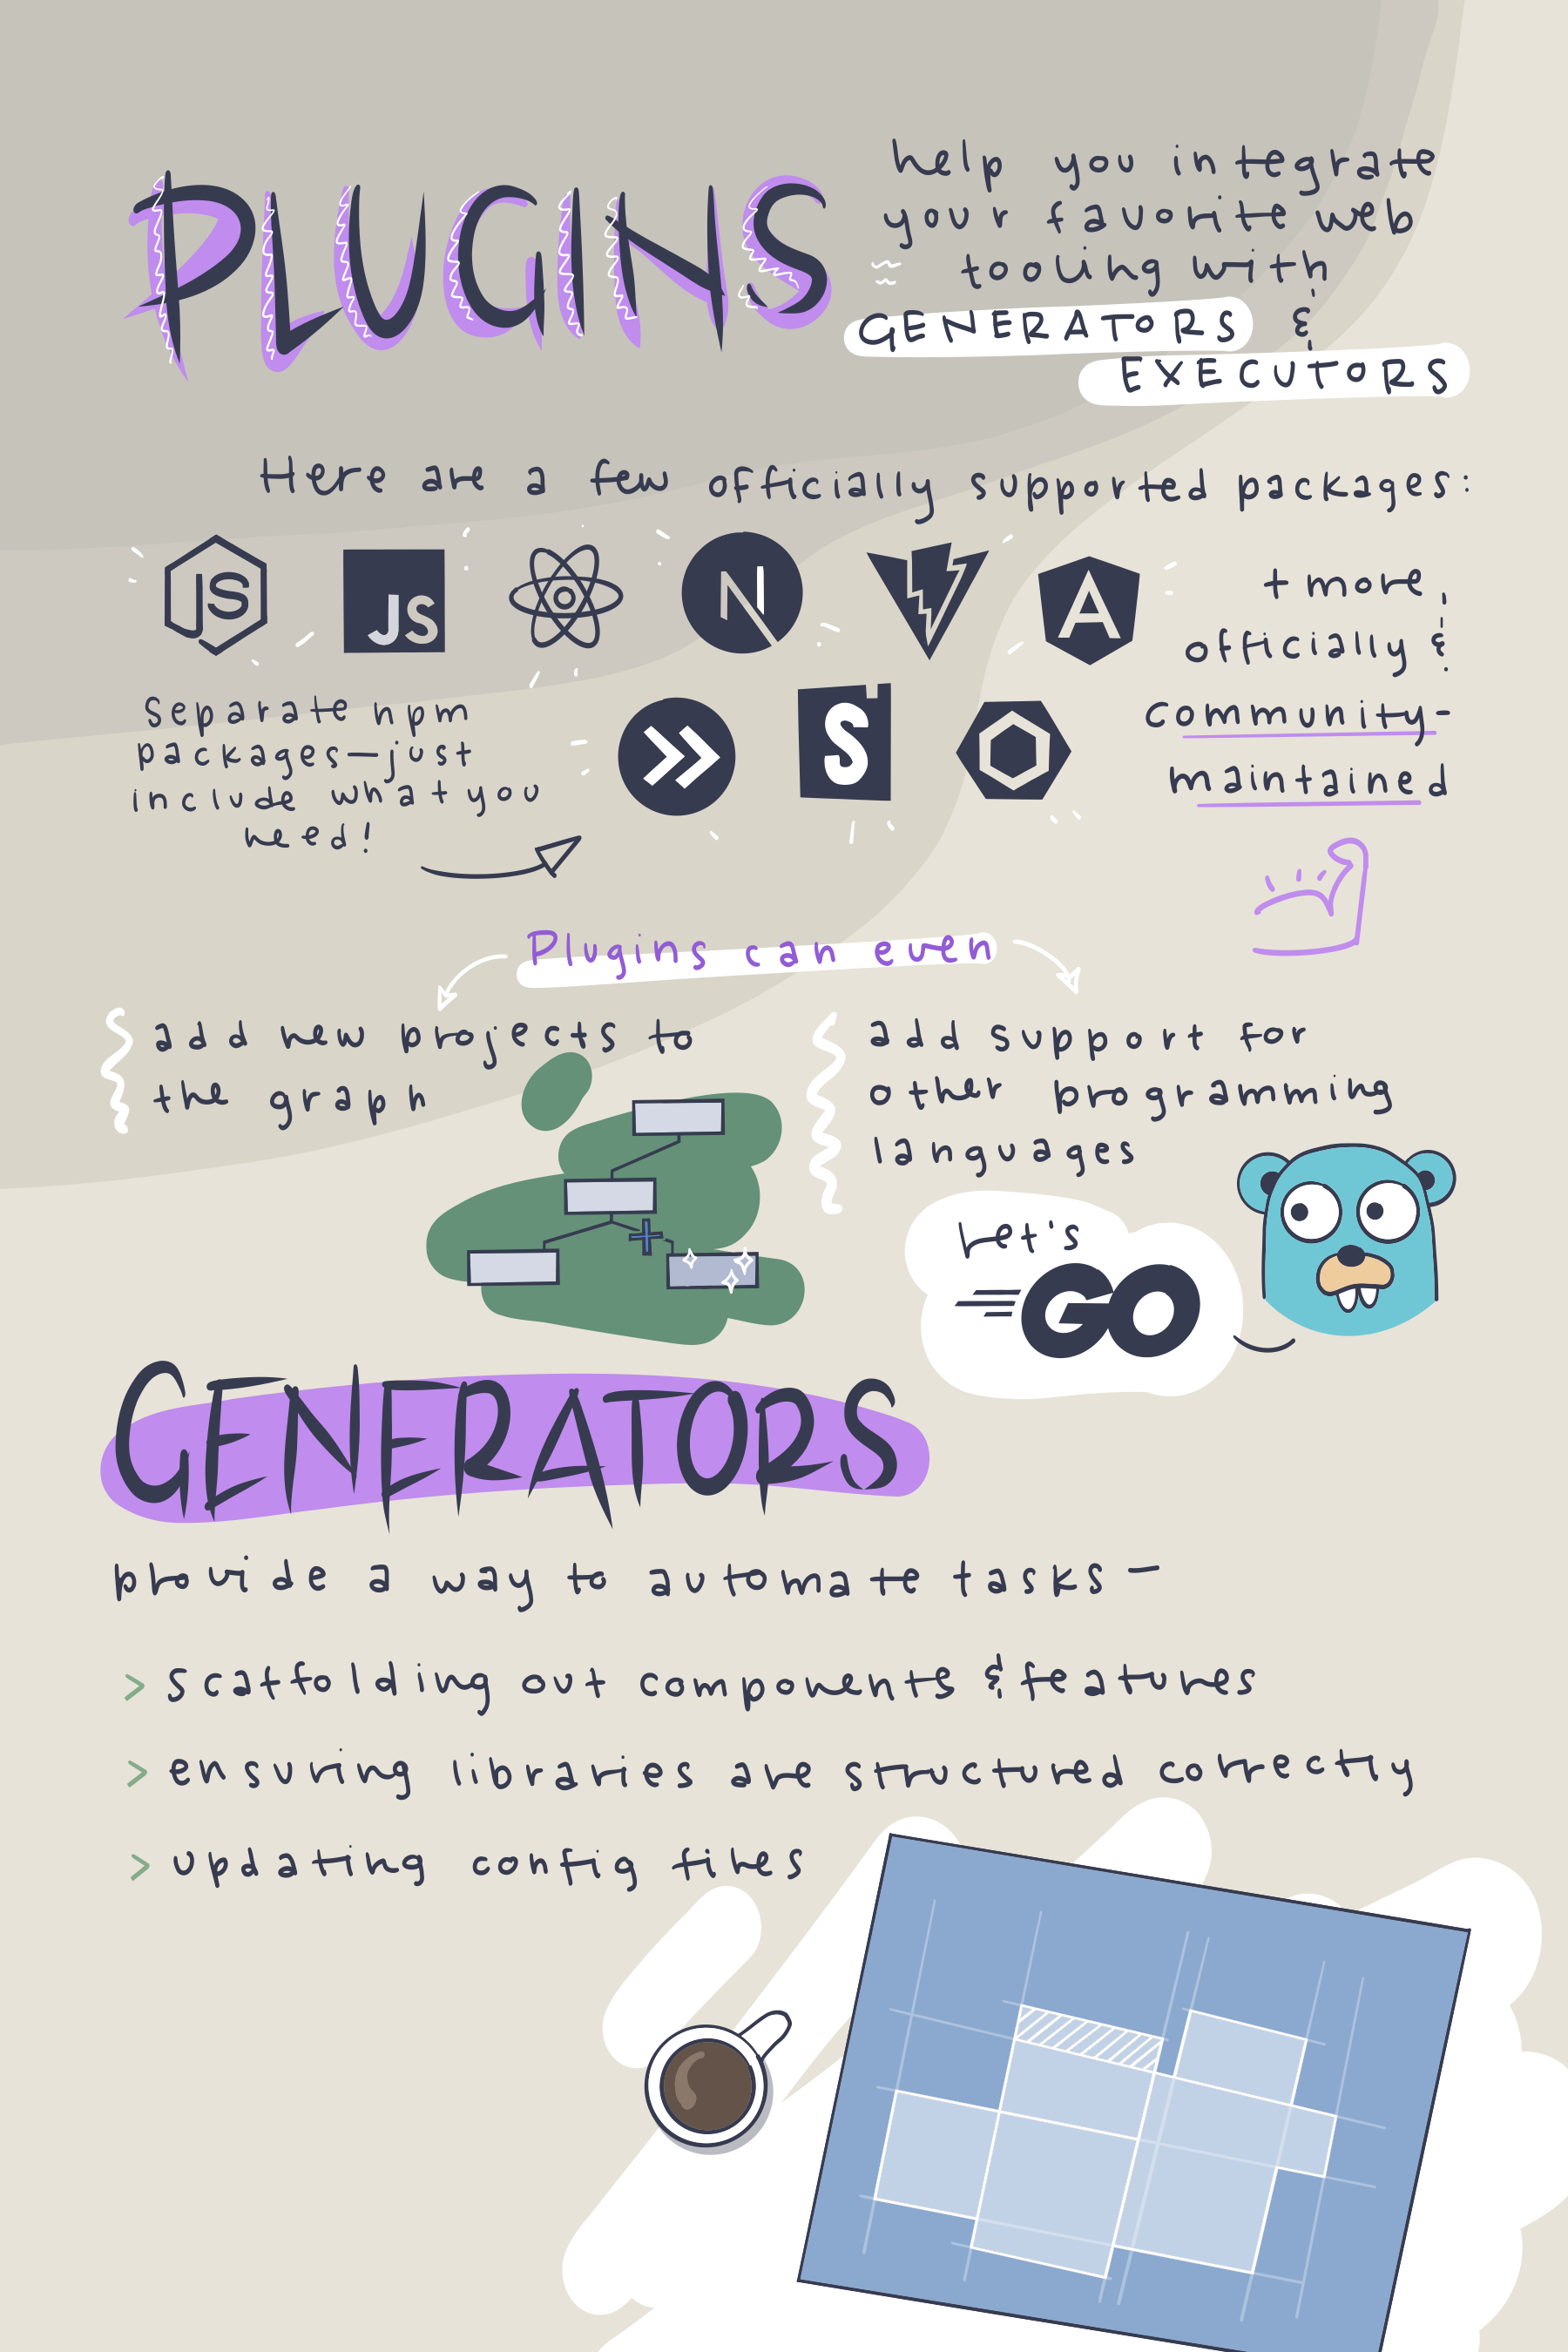 PLUGINS
help you integrate
your favorite web
tooling with
GENERATORS &
EXECUTORS
Here are a few officially supported packages:
JS
JS
N
A
+ more
officially &
community-
maintained
Separate npm
packages—just
include what you
need!
S
Plugins can even
add new projects to
the graph
add support for
other programming
languages
Let's
GO
GENERATORS
provide a way to automate tasks —
> scaffolding out components & features
> ensuring libraries are structured correctly
> updating config files